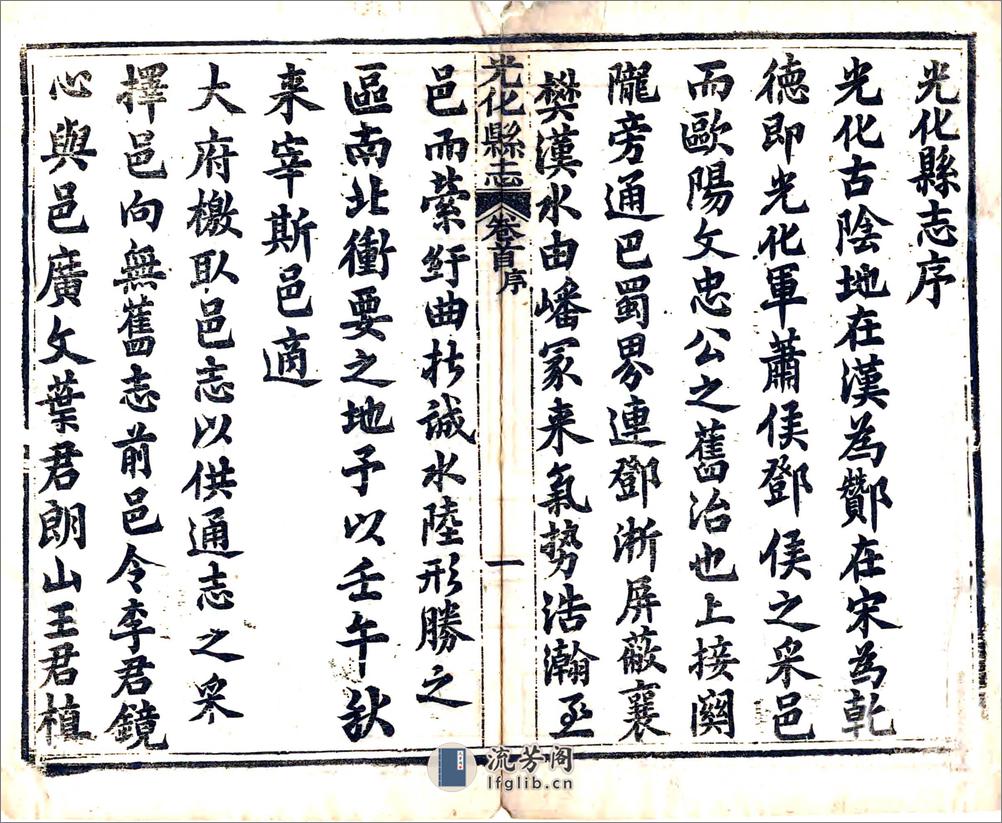 光化縣志序
光化古陰地在漢為酇在宋為乾
德即光化軍蕭侯鄧侯之采邑
而歐陽文忠公之舊治也上接關
隴旁通巴蜀界連鄧淅屏蔽襄
樊漢水由嶓冢来氣勢浩瀚至
光化縣志 卷首序 一
邑而縈紆曲折誠水陸形勝之
區南北衝要之地予以壬午秋
来宰斯邑適
大府檄取邑志以供通志之采
擇邑向無舊志前邑令李君鏡
心與邑廣文葉君朗山王君植
流芳阁
lfglib.cn